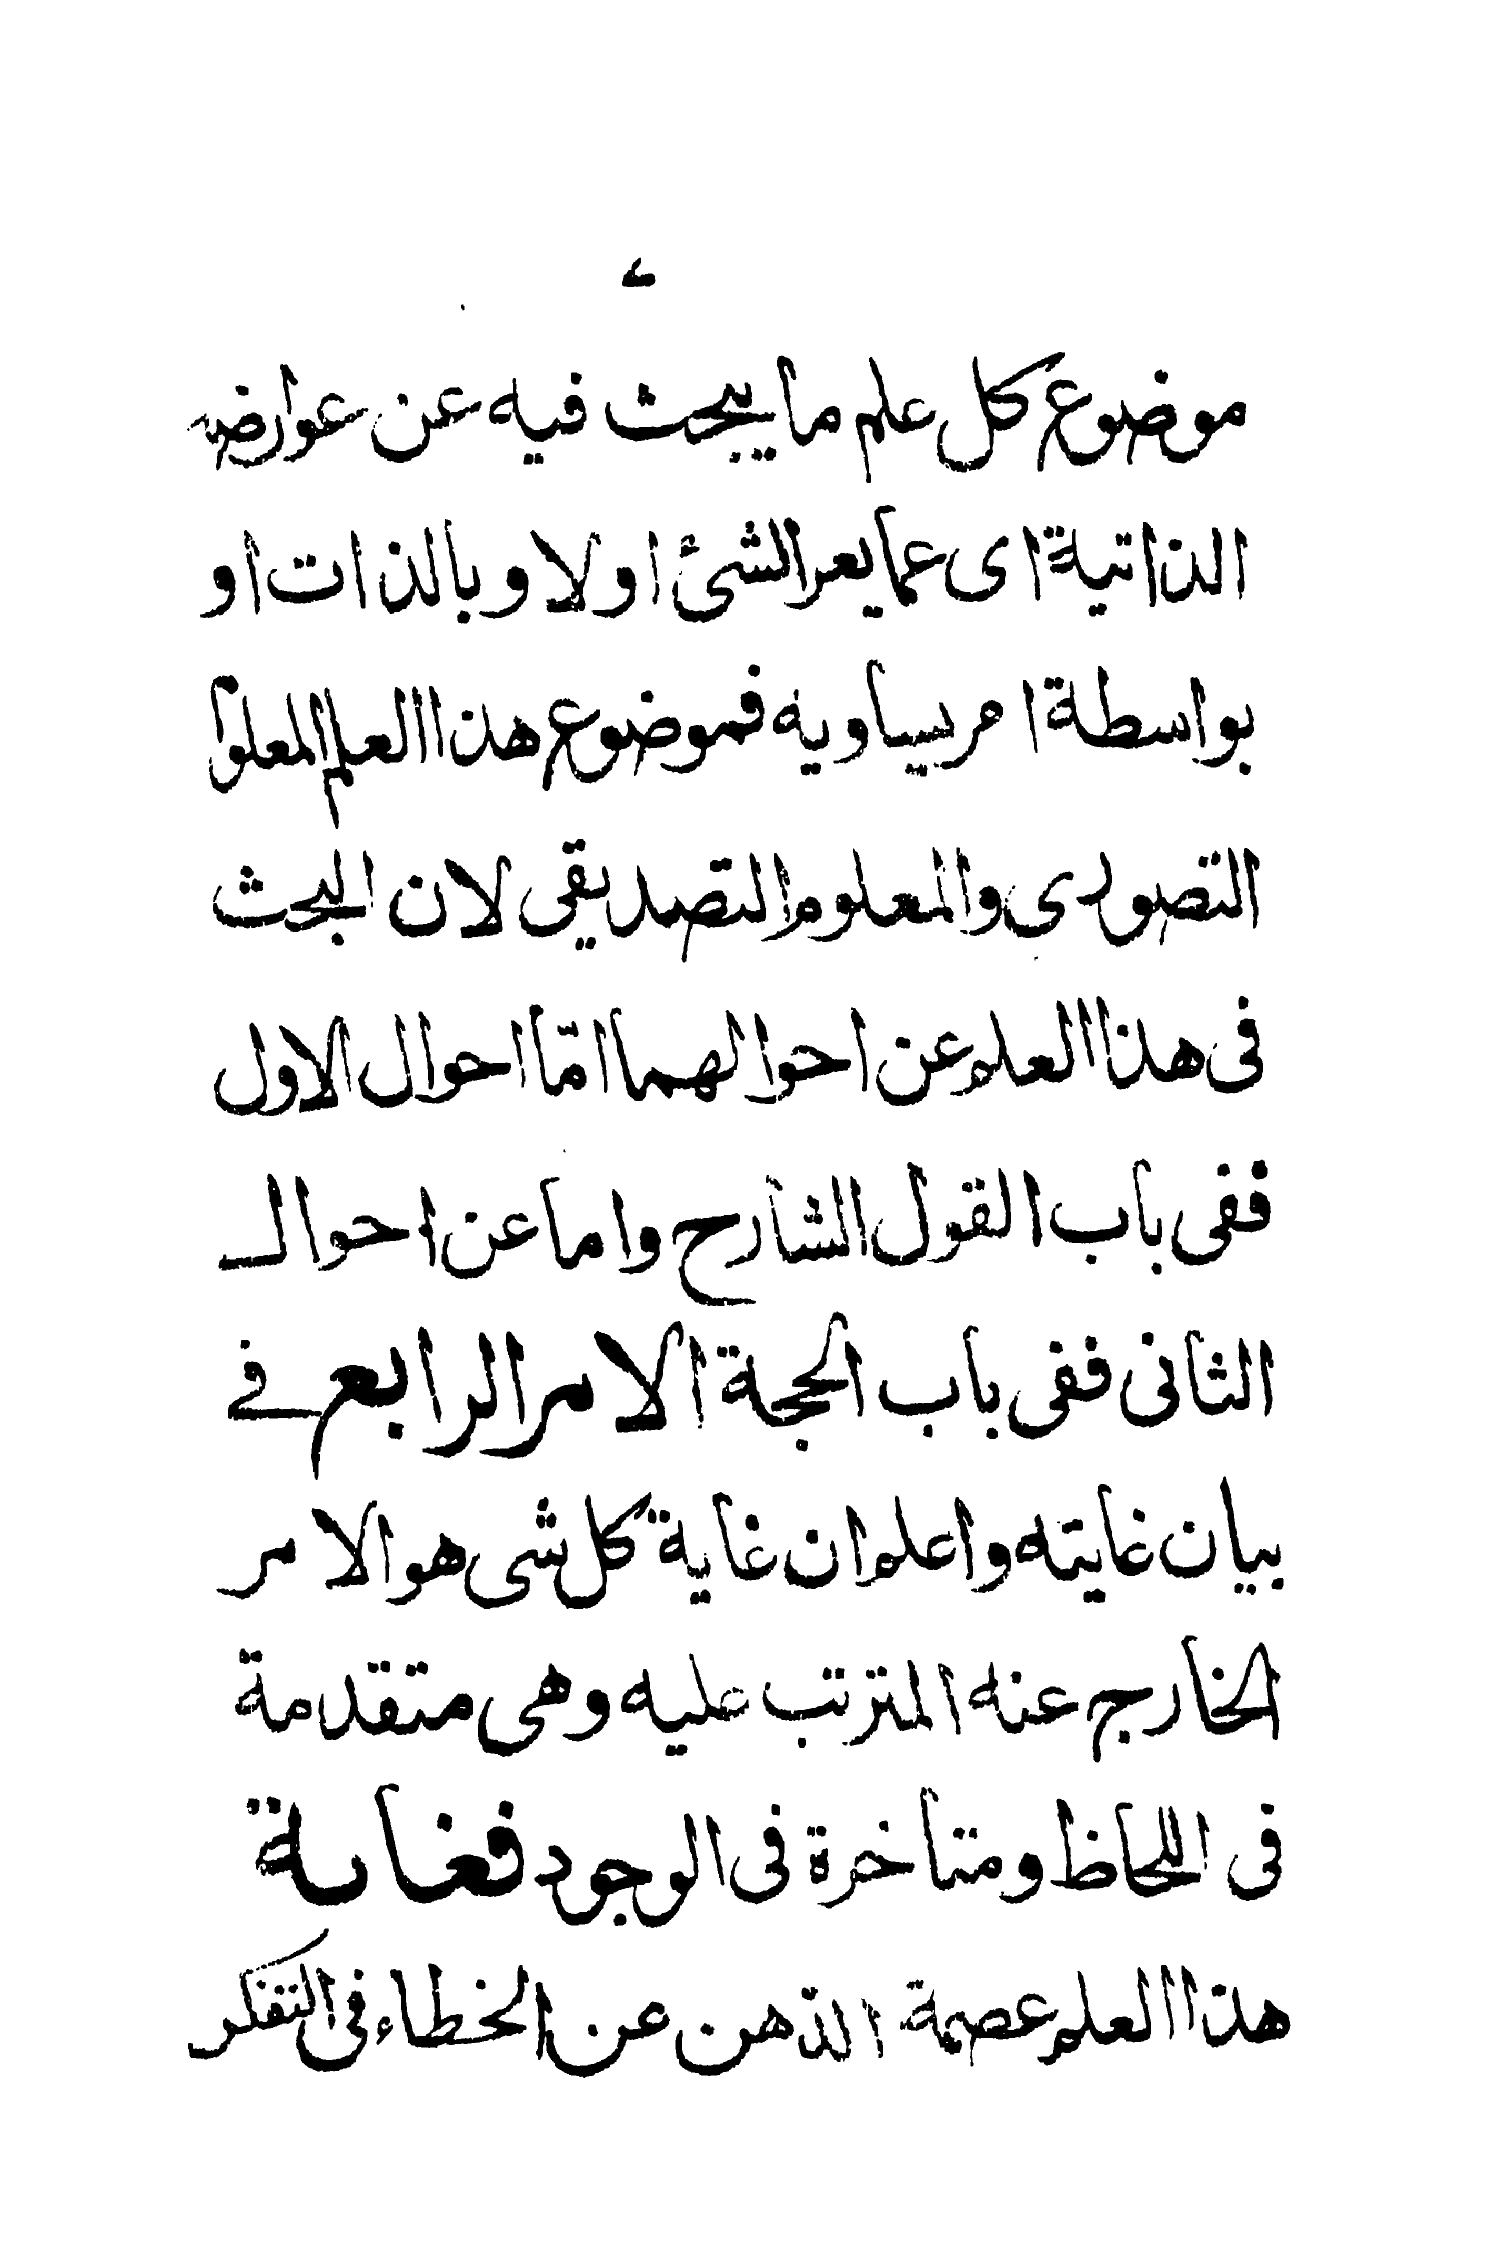 موضوع كل علم ما يبحث فيه عن عوارضه
الذاتية اى عما يعر الشئ اولا وبالذات او
بواسطة امر يساويه فموضوع هذا العلم المعلوم
التصورى والمعلوم التصديقى لان البحث
فى هذا العلم عن احوالهما امّا احوال الاول
ففى باب القول الشارح واما عن احوال
الثانى ففى باب الحجة الامر الرابع فى
بيان غايته واعلم ان غاية كل شى هو الامر
الخارج عنه المترتب عليه وهى متقدمة
فى اللحاظ ومتأخرة فى الوجود فغاية
هذا العلم عصمة الذهن عن الخطاء فى التفكر